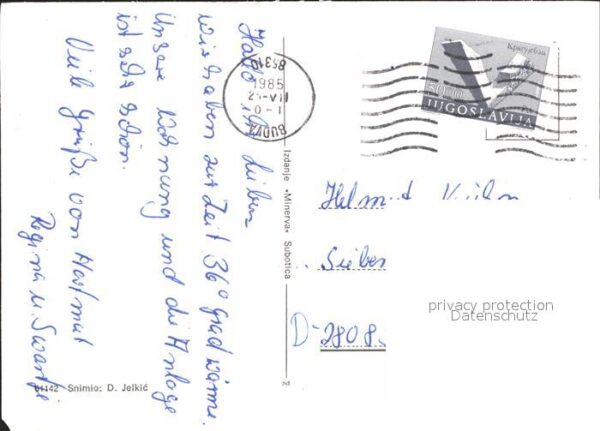 Hallo ihr Lieben
wir haben zur Zeit 36° grad wärme.
Unsere Wohnung und die Anlage
ist sehr schön.
Viele Grüße von Hartmut
Regina u Swantje
61142 Snimio: D. Jelkić
Izdanje »Minerva« Subotica
85310
1985
BUDVA
Крагујевац
JUGOSLAVIJA
Helmut
Sieben
D-2808
privacy protection
Datenschutz